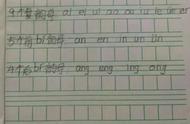 9个复韵母 ai ei ui ao ou iu ie üe er
5个前鼻韵母 an en in un ün
4个后鼻韵母 ang eng ing ong